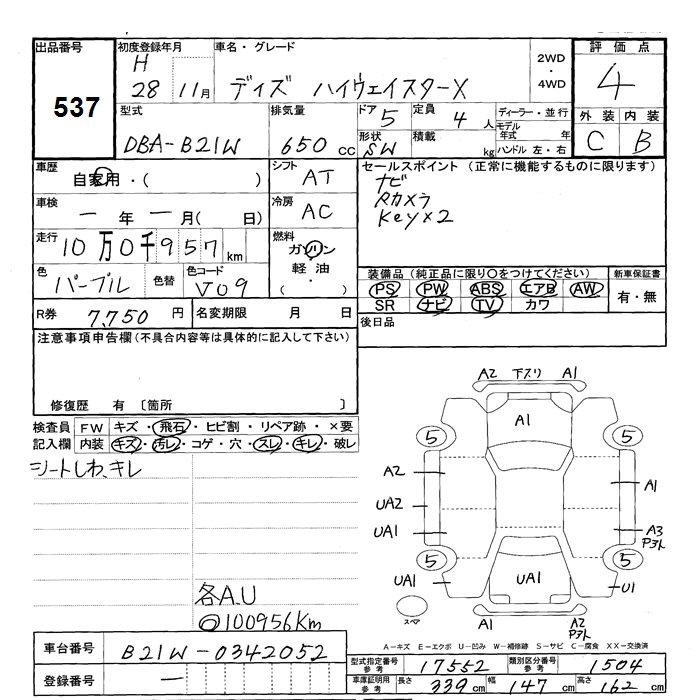 出品番号 初度登録年月 車名・グレード 2WD ・ 4WD 評価点
537
H 28 11月 デイズ ハイウェイスターX 4
型式 排気量 ドア 5 定員 4 人 ディーラー・並行 外装 内装
モデル 年式 年
DBA-B21W 650 cc 形状 SW 積載 kg ハンドル 左・右 C B
車歴 自家用・( ) シフト AT セールスポイント (正常に機能するものに限ります)
ナビ
車検 ー 年 ー 月 ( 日) 冷房 AC Rカメラ
Key×2
走行 10万0千957 km 燃料 ガソリン ・ 軽油 ・ ( )
色 パープル 色替 色コード V09 装備品 (純正品に限り○をつけてください) 新車保証書
PS PW ABS エアB AW 有・無
SR ナビ TV カワ
R券 7,750 円 名変期限 月 日 後日品
注意事項申告欄 (不具合内容等は具体的に記入して下さい)
修復歴 有 〔箇所 〕
検査員 FW キズ・飛石・ヒビ割・リペア跡・×要
記入欄 内装 キズ・汚レ・コゲ・穴・スレ・キレ・破レ
シートしわ、キレ
各A.U
◎100956Km
A2 下スリ A1
A1
5 5
A2 A1
UA2
UA1 A3
Pヨト
5 5
UA1 UA1 U1
スペア A1 A2
Pヨト
A-キズ E-エクボ U-凹み W-補修跡 S-サビ C-腐食 XX-交換済
車台番号 B21W-0342052
型式指定番号 参考 17552 類別区分番号 参考 1504
登録番号 ー
車庫証明用 参考 長さ 339 cm 幅 147 cm 高さ 162 cm